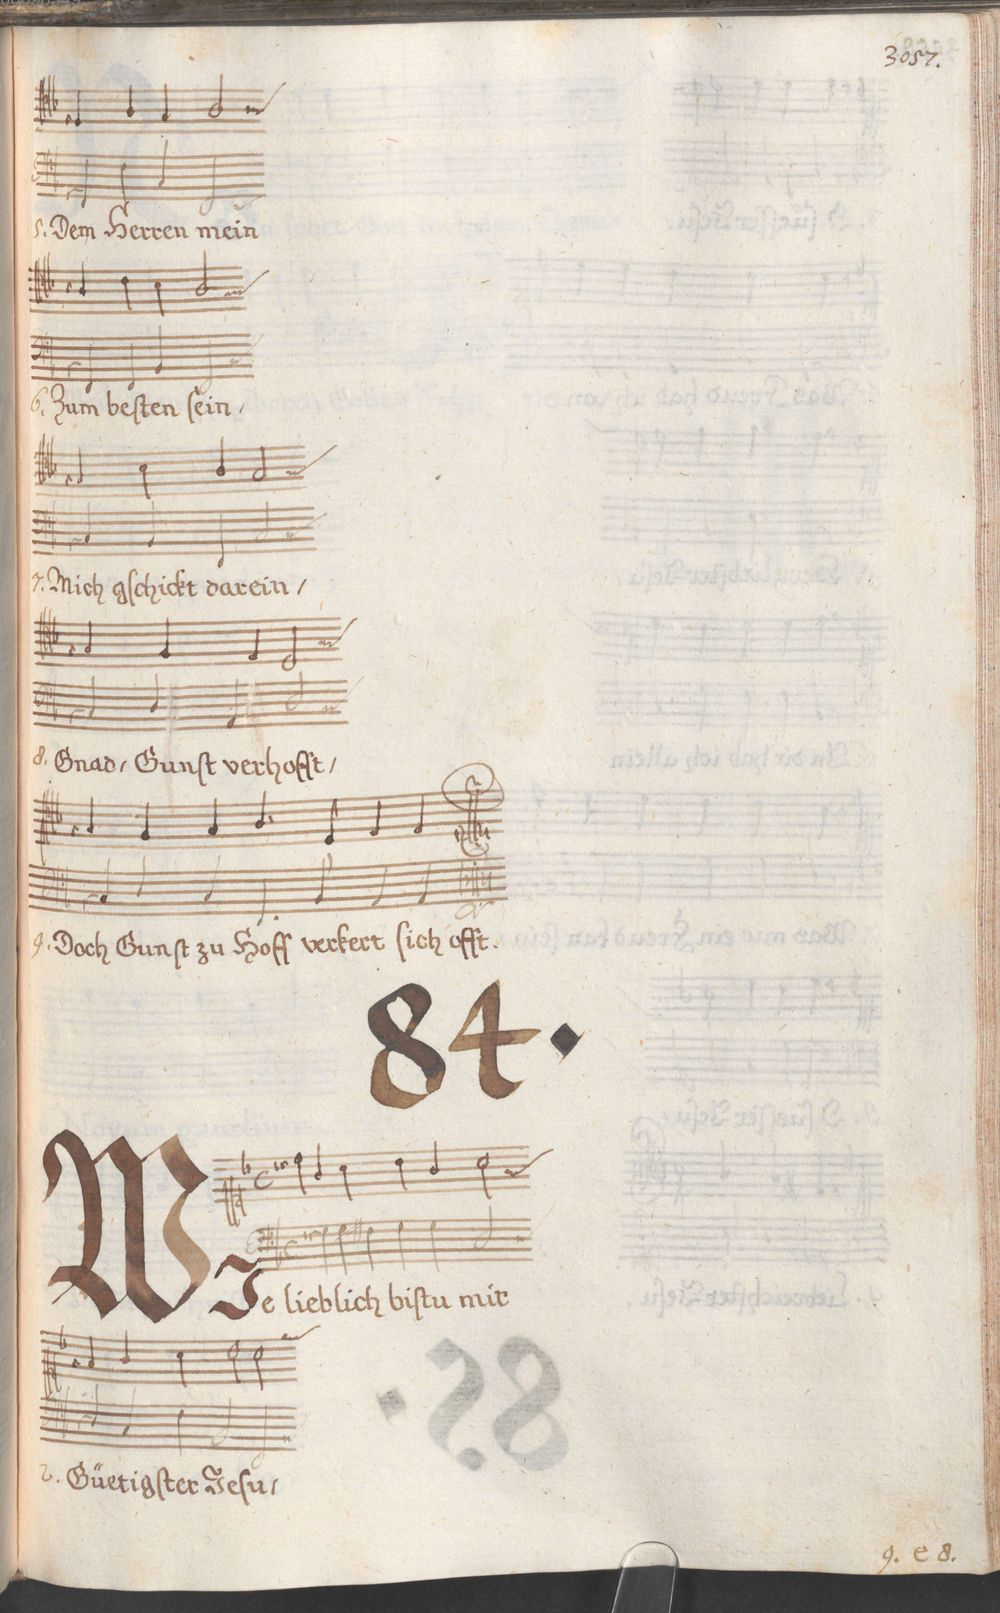 3057.
5. Dem Herren mein
6. Zum besten sein /
7. Mich gschickt darein /
8. Gnad / Gunst verhofft /
9. Doch Gunst zu Hoff verkert sich offt.
84.
WIe lieblich bistu mir
2. Güetigster Jesu /
9. e 8.